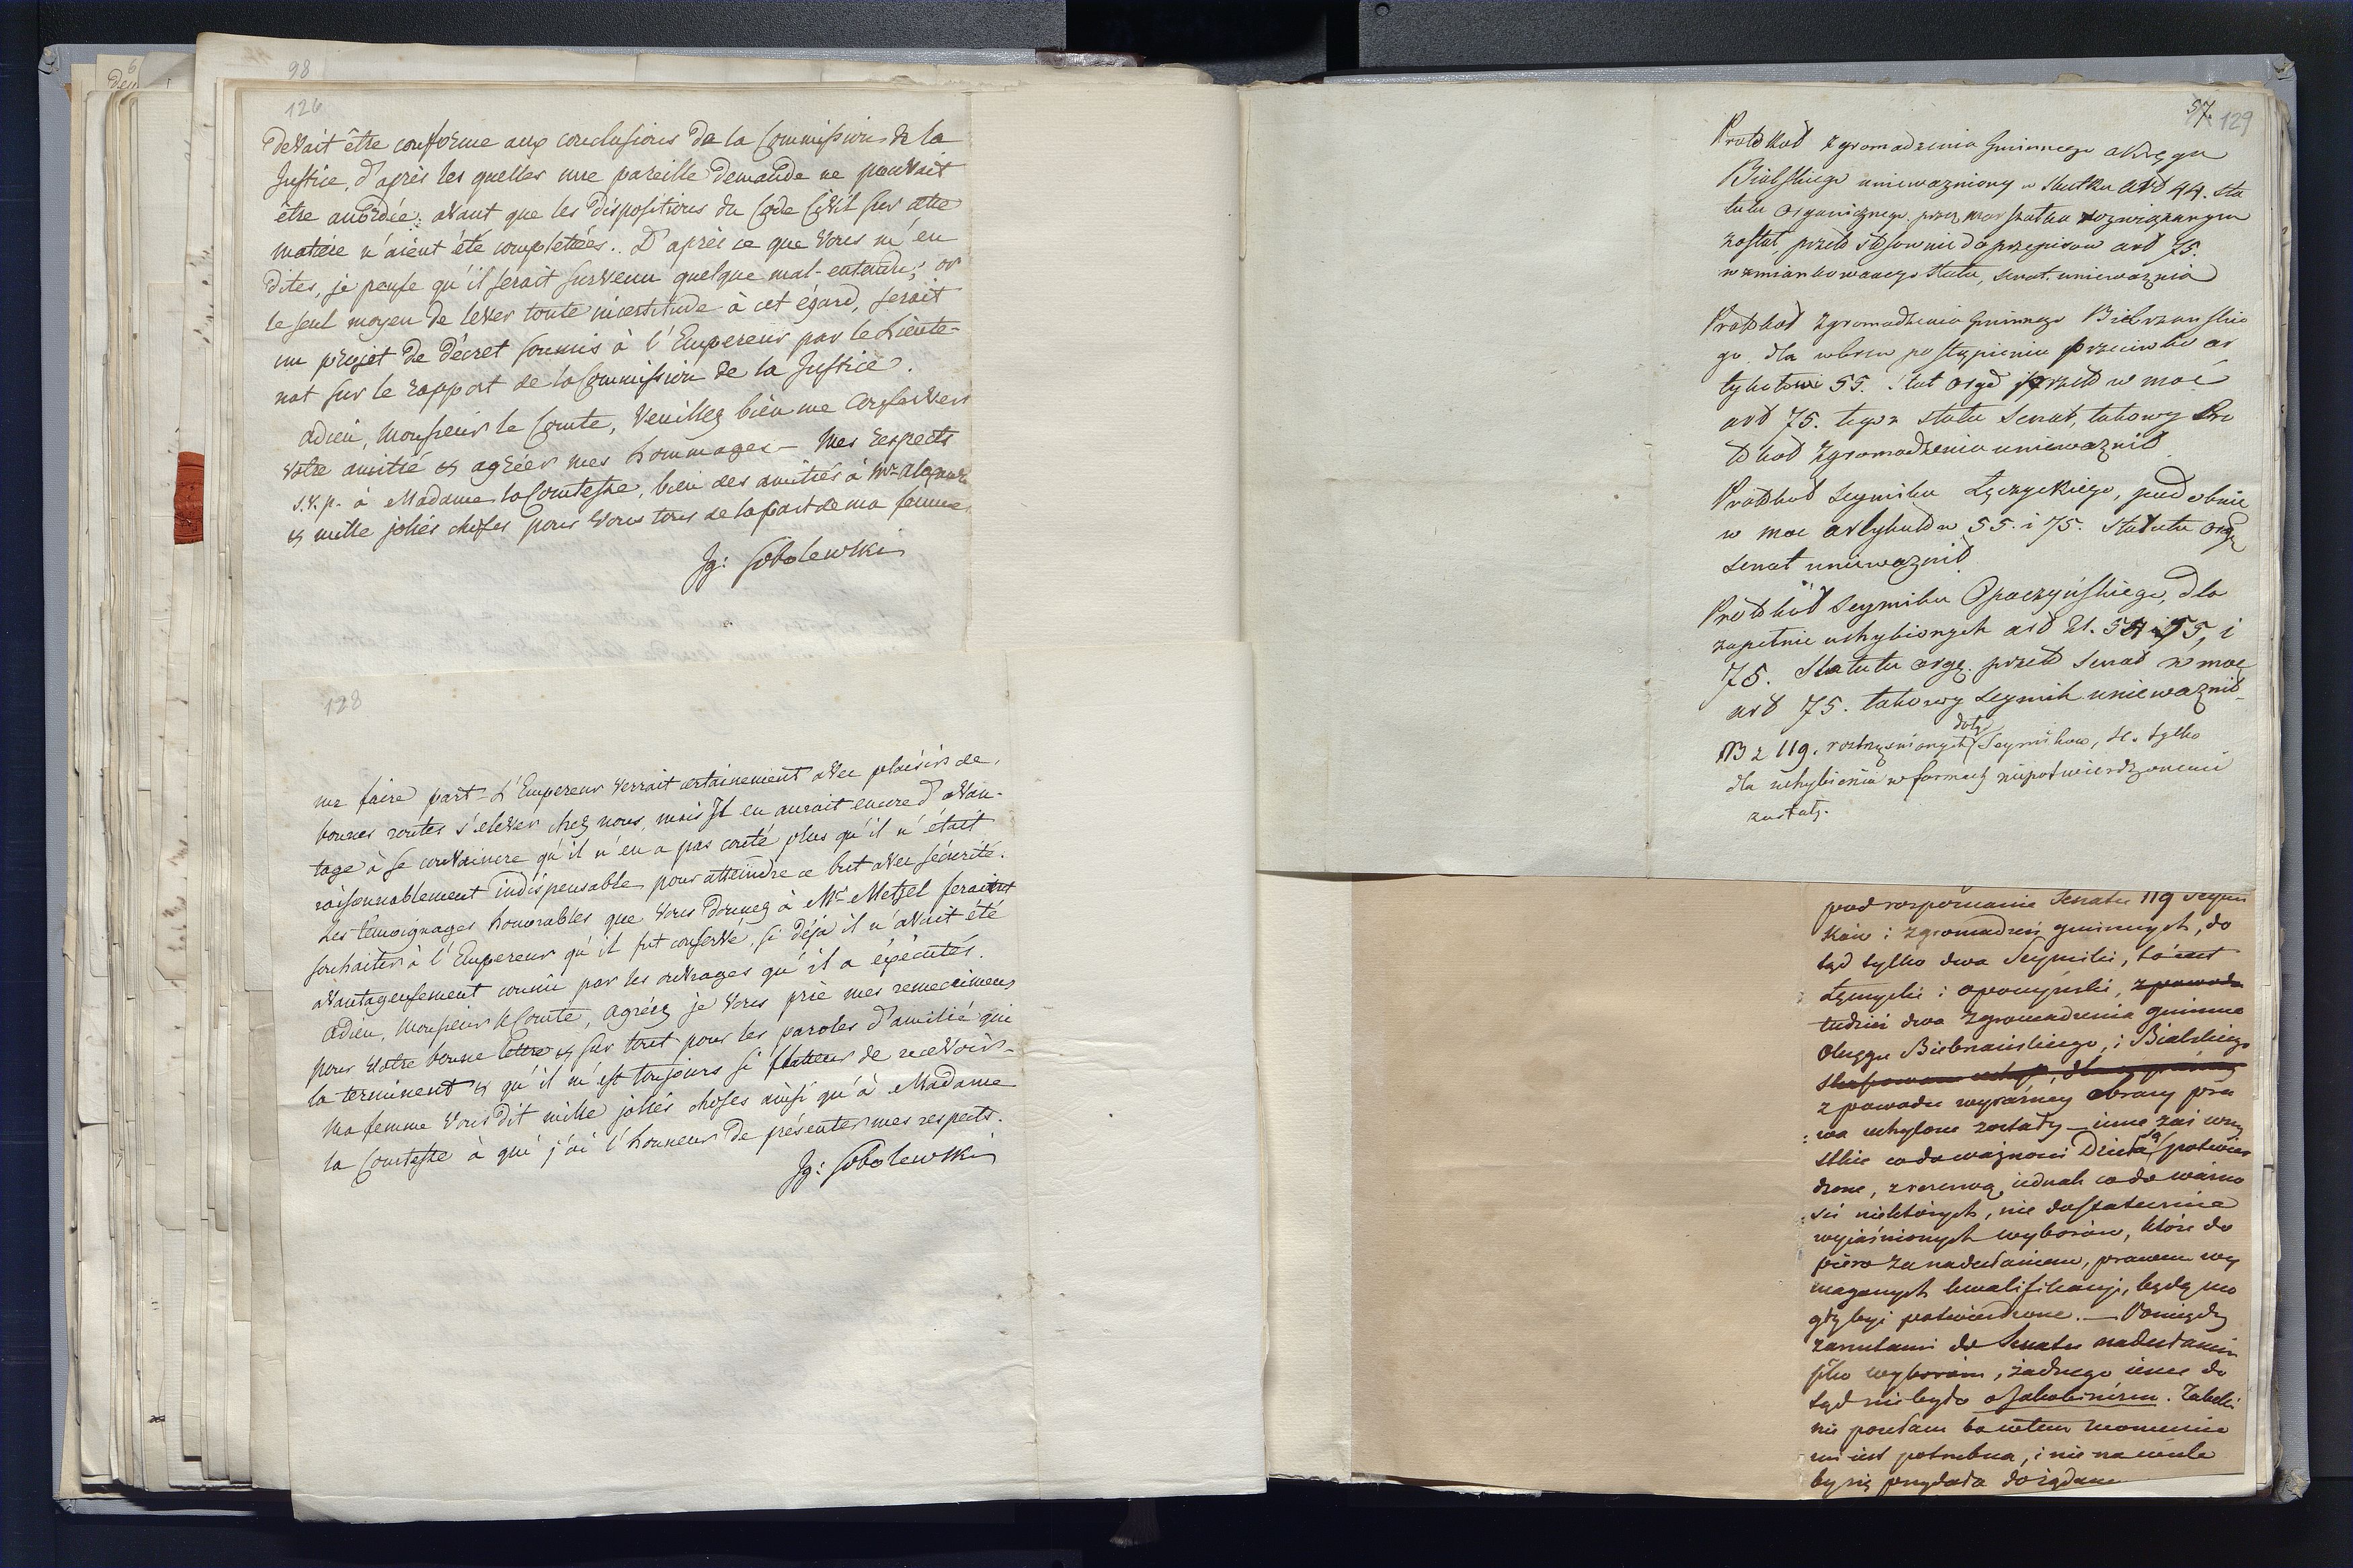 98
126
devait être conforme aux conclusions de la Commission de la
Justice, d'après les quelles une pareille demande ne pouvait
être accordée; avant que les dispositions du Code Civil sur cette
matière n'aient été complettées. D'après ce que Vous m'en
dites, je pense qu'il serait survenu quelque mal-entendu; or
le seul moyen de lever toute incertitude à cet égard, serait
un projet de décret soumis à l'Empereur par le Lieute-
nat sur le rapport de la Commission de la Justice.
Adieu, Monsieur le Comte, Veuillez bien me conserver
Votre amitié et agréer mes hommages - Mes respects
s.v.p. à Madame la Comtesse, bien des amitiés à Mr
et mille jolies choses pour Vous tous de la part de ma femme
Ig: Sobolewski
128
me faire part - L'Empereur verrait certainement avec plaisir de
bonnes routes s'élever chez nous, mais Il en aurait encore d'avan-
tage à se convaincre qu'il n'en a pas couté plus qu'il n'était
raisonnablement indispensable pour atteindre ce but avec sécurité.
Les témoignages honorables que Vous donnez à Mr Metzel feraient
souhaiter à l'Empereur qu'il fut conservé, si déjà il n'avait été
avantageusement connu par les ouvrages qu'il a exécutés.
Adieu, Monsieur le Comte, agréez je Vous prie mes remercimens
pour Votre bonne lettre et sur tout pour les paroles d'amitié qui
la terminent et qu'il m'est toujours si flatteur de recevoir -
Ma femme Vous dit mille jolies choses ainsi qu'à Madame
la Comtesse à qui j'ai l'honneur de présenter mes respects.
Ig: Sobolewski
57. 129
Protokuł zgromadzenia Gminnego okręgu
Bialskiego uniewazniony w skutku art 44. sta
tutu Organicznego. przez Marszałka rozwiązanym
został, przeto stosownie do przepisow art 75.
wzmiankowanego Statu, senat uniewaznia
Protokuł zgromadzenia Gminnego Biebrzanskie
go dla wbrew postąpienia przeciwko ar
tykułowi 55. Stat Orgo przeto w moc
art 75. tegoz statu Senat, takowy Pro
tokuł zgromadzenia uniewaznił
Protokuł Seymiku Łęczyckiego, podobnie
w moc artykułow 55. i 75. Statutu Org
senat uniewaznił
Protokuł Seymiku Opoczyńskiego, dla
zupełnie uchybionych art 21. 54 i 55, i
75. Statutu orgz. przeto senat w moc
art 75. takowy Seymik uniewaznił
doty
NB z 119. roztrząsnionych Seymikow, 4. tylko
dla uchybienia w formach niepotwierdzonemi
zostały.
pod rozpoznanie Senatu 119 Seymi
ków i zgromadzeń gminnych, do
tąd tylko dwa Seymiki, to iest
Łęczycki i opoczyński, z powodu
tudzież dwa zgromadzenia gminne
Okręgu Biebrzańskiego, i Bialskiego
z powodu wyraźney obrazy pra
wa uchylone zostały - inne zaś wszy
stkie co do ważności Dzieła są potwier
dzone, z rezerwą iednak co do ważno
ści niektórych, nie dostatecznie
wyiaśnionych wyborów, które do
piero za nadesłaniem, prawem wy
maganych kwalifikacyi, będą mo
gły być potwierdzone. - Pomiędzy
zarzutami do Senatu nadesłanemi
wyborom, żadnego iesze do
tąd nie było o Jakobinizm. Tabelli
nie posełam bo w tem momencie
mi iest potrzebna, i nie na wiele
by się przydała do żądane